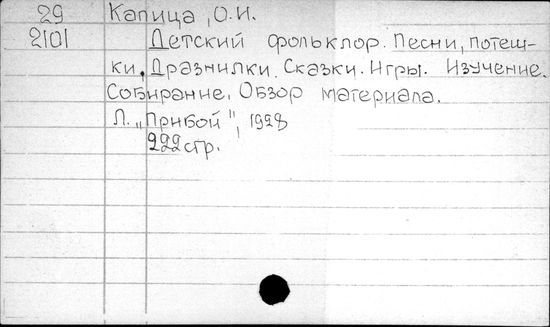 29 Капица, О.И.
2101 Детский фольклор. Песни, потеш-
ки, Дразнилки. Сказки. Игры. Изучение.
Собирание. Обзор материала.
Л. „Прибой", 1928
222 стр.